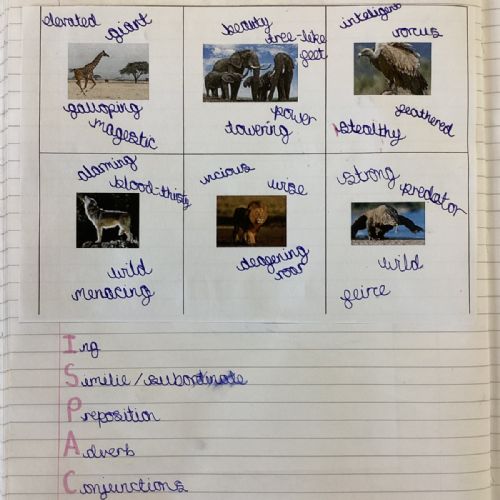 elevated
giant
galloping
magestic
beauty
tree-like
feet
power
towering
intelligent
vorcus
feathered
stealthy
alaming
blood-thisty
wild
menacing
vicious
wise
deagering
roar
strong
predator
wild
feirce
Ing
Similie / subordinate
Preposition
Adverb
Conjunctions